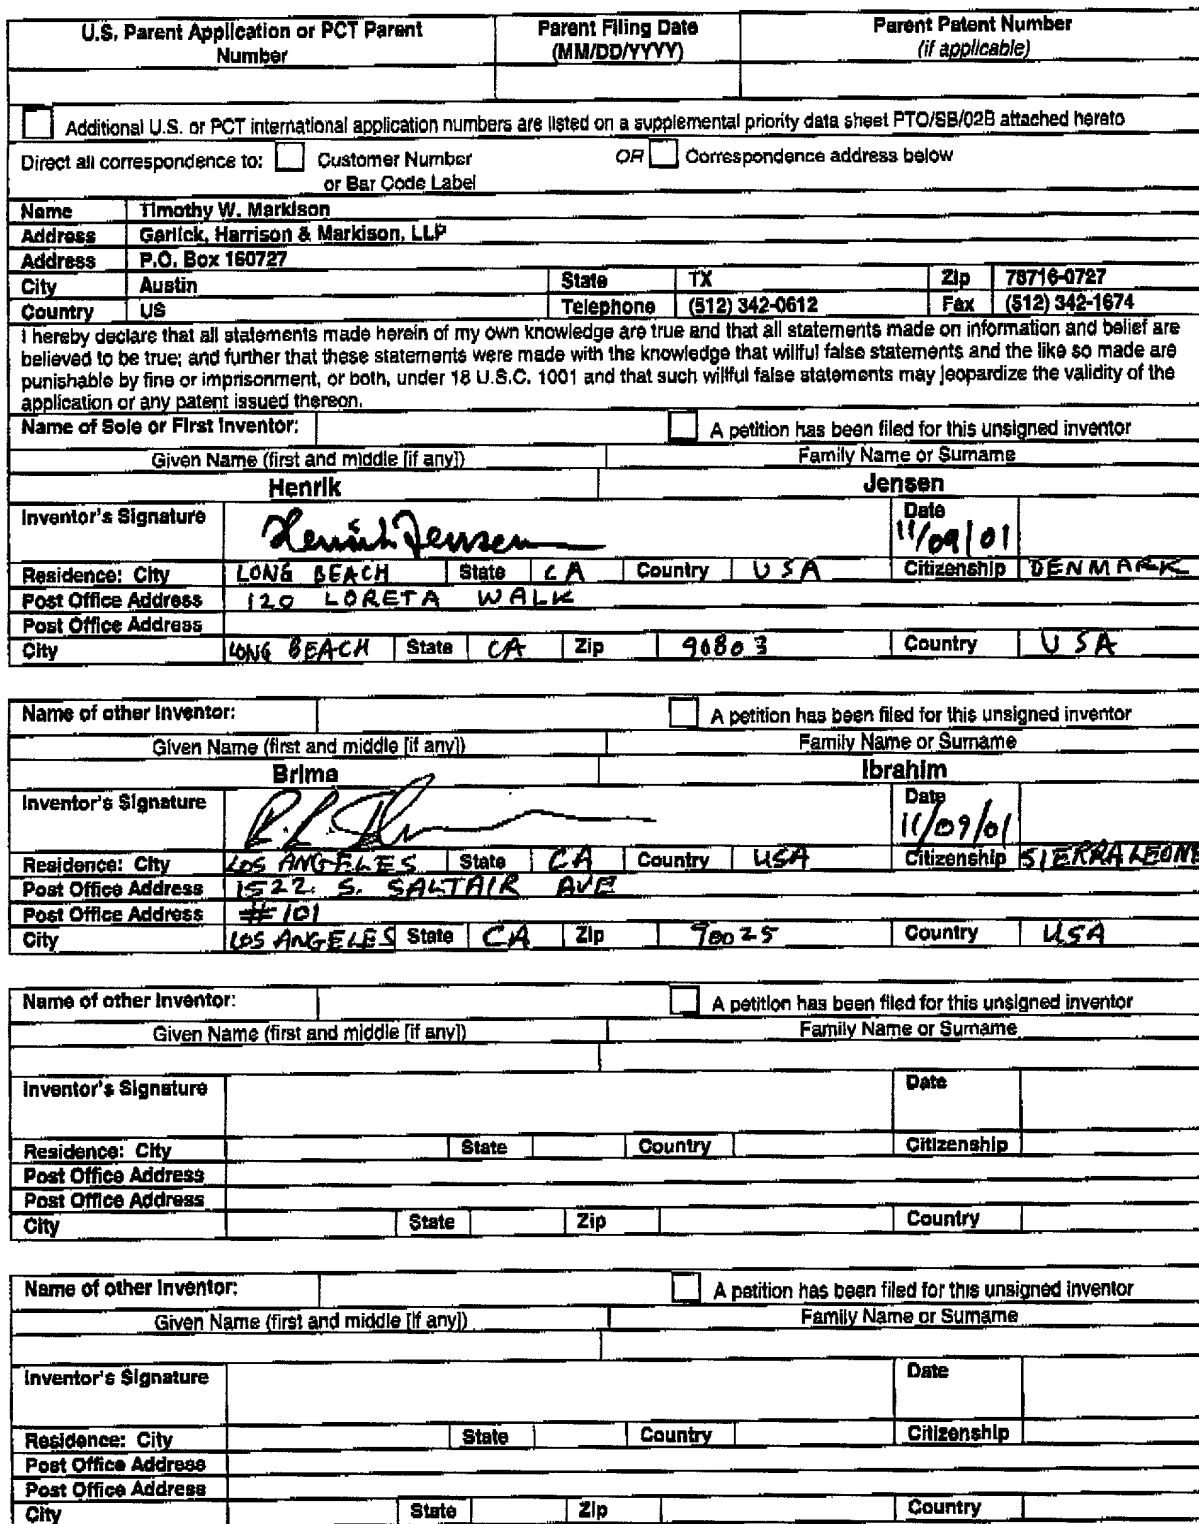 U.S. Parent Application or PCT Parent Number Parent Filing Date (MM/DD/YYYY) Parent Patent Number (if applicable)
Additional U.S. or PCT international application numbers are listed on a supplemental priority data sheet PTO/SB/02B attached hereto
Direct all correspondence to: Customer Number or Bar Code Label OR Correspondence address below
Name Timothy W. Markison
Address Garlick, Harrison & Markison, LLP
Address P.O. Box 160727
City Austin State TX Zip 78716-0727
Country US Telephone (512) 342-0612 Fax (512) 342-1674
I hereby declare that all statements made herein of my own knowledge are true and that all statements made on information and belief are
believed to be true; and further that these statements were made with the knowledge that willful false statements and the like so made are
punishable by fine or imprisonment, or both, under 18 U.S.C. 1001 and that such willful false statements may jeopardize the validity of the
application or any patent issued thereon.
Name of Sole or First Inventor: A petition has been filed for this unsigned inventor
Given Name (first and middle [if any]) Family Name or Surname
Henrik Jensen
Inventor's Signature Henrik Jensen Date 11/09/01
Residence: City LONG BEACH State CA Country USA Citizenship DENMARK
Post Office Address 120 LORETA WALK
Post Office Address
City LONG BEACH State CA Zip 90803 Country USA
Name of other Inventor: A petition has been filed for this unsigned inventor
Given Name (first and middle [if any]) Family Name or Surname
Brima Ibrahim
Inventor's Signature Date 11/09/01
Residence: City LOS ANGELES State CA Country USA Citizenship SIERRA LEONE
Post Office Address 1522 S. SALTAIR AVE
Post Office Address #101
City LOS ANGELES State CA Zip 90025 Country USA
Name of other Inventor: A petition has been filed for this unsigned inventor
Given Name (first and middle [if any]) Family Name or Surname
Inventor's Signature Date
Residence: City State Country Citizenship
Post Office Address
Post Office Address
City State Zip Country
Name of other Inventor: A petition has been filed for this unsigned inventor
Given Name (first and middle [if any]) Family Name or Surname
Inventor's Signature Date
Residence: City State Country Citizenship
Post Office Address
Post Office Address
City State Zip Country